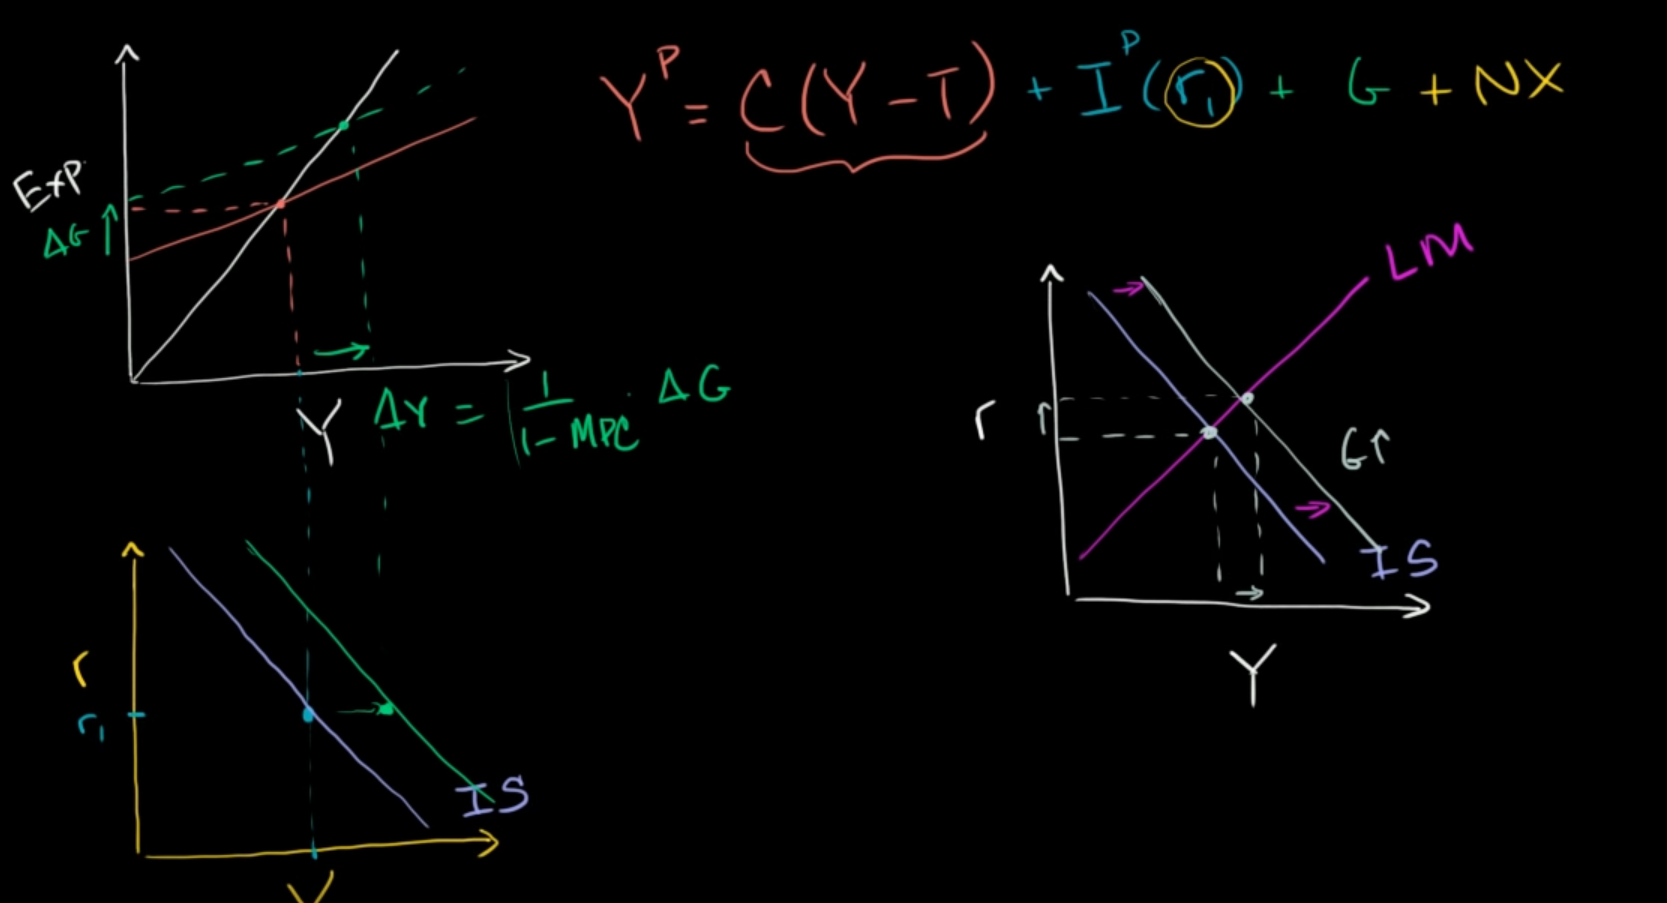 Y^P = C(Y-T) + I^P(r₁) + G + NX
Exp
ΔG↑
Y
ΔY = (1/(1-MPC) · ΔG
r
r₁
IS
Y
LM
r
G↑
IS
Y